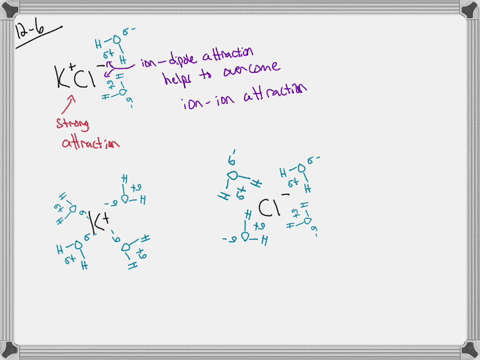 12-6
K⁺Cl⁻
ion-dipole attraction
helps to overcome
ion-ion attraction
strong
attraction
H O δ-
δ+ H
H O H
δ+ δ-
K⁺
H O H
δ+ δ-
H O H
δ+ δ-
H O H
δ+ δ-
H O H
δ+ δ-
Cl⁻
H O H
δ+ δ-
H O H
δ+ δ-
H O H
δ+ δ-
H O H
δ+ δ-